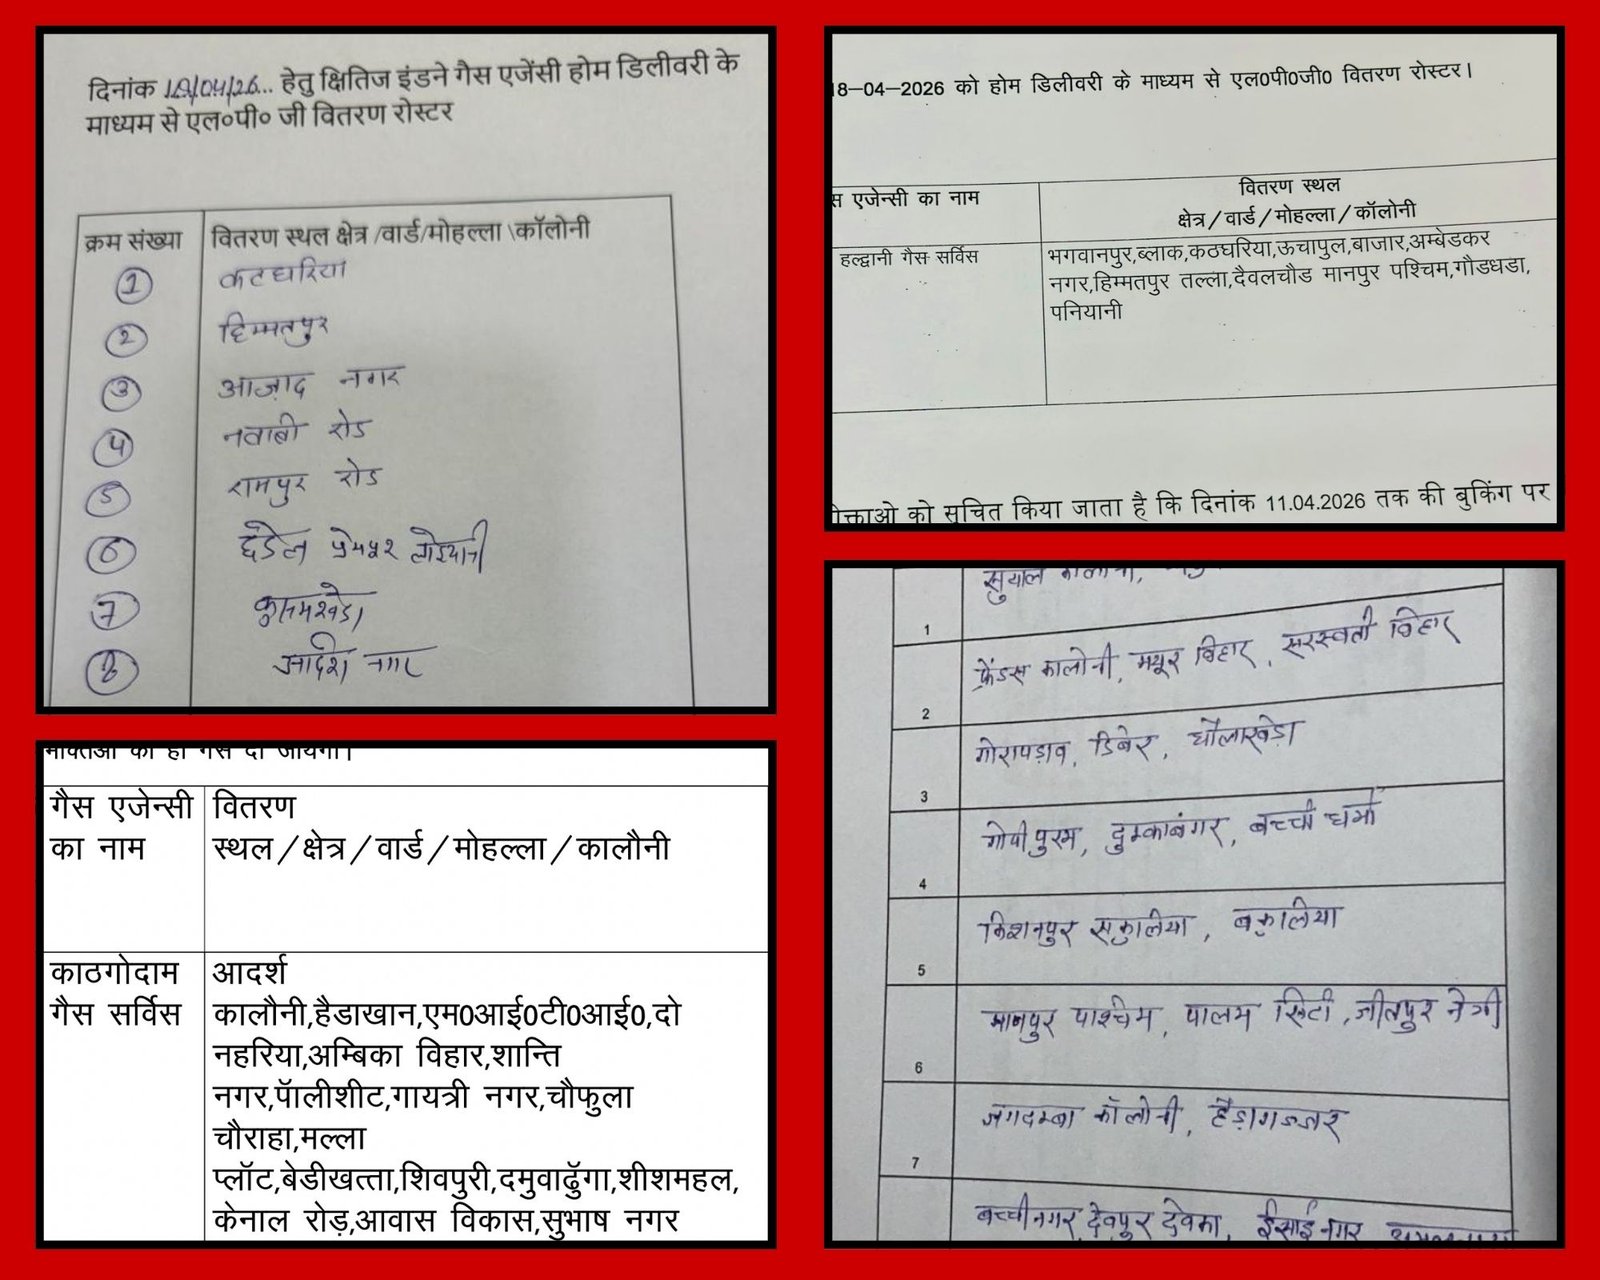 दिनांक 18/04/26... हेतु क्षितिज इंडने गैस एजेंसी होम डिलीवरी के
माध्यम से एल०पी० जी वितरण रोस्टर
क्रम संख्या वितरण स्थल क्षेत्र /वार्ड/मोहल्ला \कॉलोनी
1 कठघरिया
2 हिम्मतपुर
3 आज़ाद नगर
4 नवाबी रोड
5 रामपुर रोड
6 प्रेमपुर
7 कुसुमखेडा
8 नगर
18–04–2026 को होम डिलीवरी के माध्यम से एल0पी0जी0 वितरण रोस्टर।
स एजेन्सी का नाम
वितरण स्थल
क्षेत्र/वार्ड/मोहल्ला/कॉलोनी
हल्द्वानी गैस सर्विस
भगवानपुर,ब्लाक,कठघरिया,ऊचापुल,बाजार,अम्बेडकर
नगर,हिम्मतपुर तल्ला,दैवलचौड मानपुर पश्चिम,गौडधडा,
पनियानी
को सूचित किया जाता है कि दिनांक 11.04.2026 तक की बुकिंग पर
गैस एजेन्सी
का नाम
वितरण
स्थल/क्षेत्र/वार्ड/मोहल्ला/कालौनी
काठगोदाम
गैस सर्विस
आदर्श
कालौनी,हैडाखान,एम0आई0टी0आई0,दो
नहरिया,अम्बिका विहार,शान्ति
नगर,पॅालीशीट,गायत्री नगर,चौफुला
चौराहा,मल्ला
प्लॉट,बेडीखत्ता,शिवपुरी,दमुवाढुॅगा,शीशमहल,
केनाल रोड़,आवास विकास,सुभाष नगर
1 सुयाल कालोनी,
2 फ्रेंडस कालोनी, मयूर विहार, सरस्वती विहार
3 गोरापड़ाव, डिबेर, धौलाखेड़ा
4 गोपीपुरम, दुम्काबंगर, बच्ची धर्मा
5 किशनपुर सकुलिया, बकुलिया
6 मानपुर पाश्चिम, पालम सिटी, जीतपुर नेगी
7 जगदम्बा कॉलोनी, हैड़ागज्जर
बच्चीनगर, देवपुर देवका, ईसाई नगर